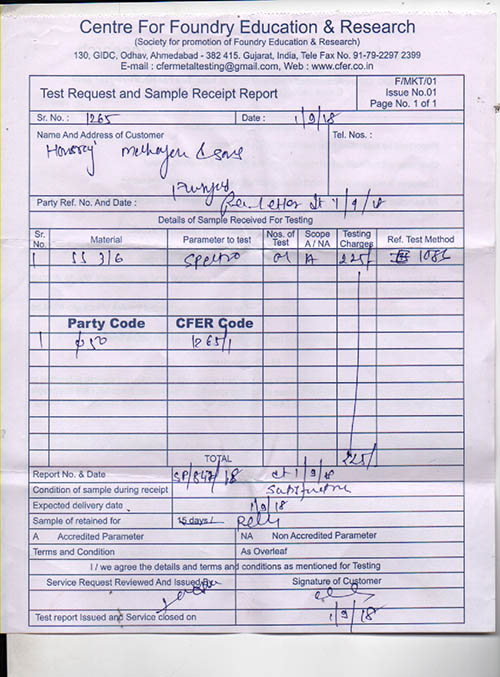 Centre For Foundry Education & Research
(Society for promotion of Foundry Education & Research)
130, GIDC, Odhav, Ahmedabad - 382 415. Gujarat, India, Tele Fax No. 91-79-2297 2399
E-mail : cfermetaltesting@gmail.com, Web : www.cfer.co.in
Test Request and Sample Receipt Report
F/MKT/01
Issue No.01
Page No. 1 of 1
Sr. No. : 1265 Date : 1/9/18
Name And Address of Customer Tel. Nos. :
& sons
Party Ref. No. And Date : Letter dt 1/9/18
Details of Sample Received For Testing
Sr. No. Material Parameter to test Nos. of Test Scope A / NA Testing Charges Ref. Test Method
1 SS 316 Spectro 01 A 225/ 1086
Party Code CFER Code
1 φ50 1265/1
TOTAL 225/
Report No. & Date SP/847/18 dt 1/9/18
Condition of sample during receipt
Expected delivery date 1/9/18
Sample of retained for 15 days /
A Accredited Parameter NA Non Accredited Parameter
Terms and Condition As Overleaf
I / we agree the details and terms and conditions as mentioned for Testing
Service Request Reviewed And Issued By Signature of Customer
1/9/18
Test report Issued and Service closed on